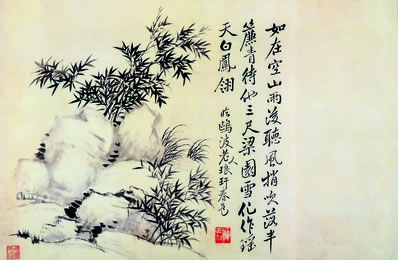 如在空山雨後聽風梢吹落半
簾青待他三尺梁園雪化作瑤
天白鳳翎
臨鷗波老人琅玕春色